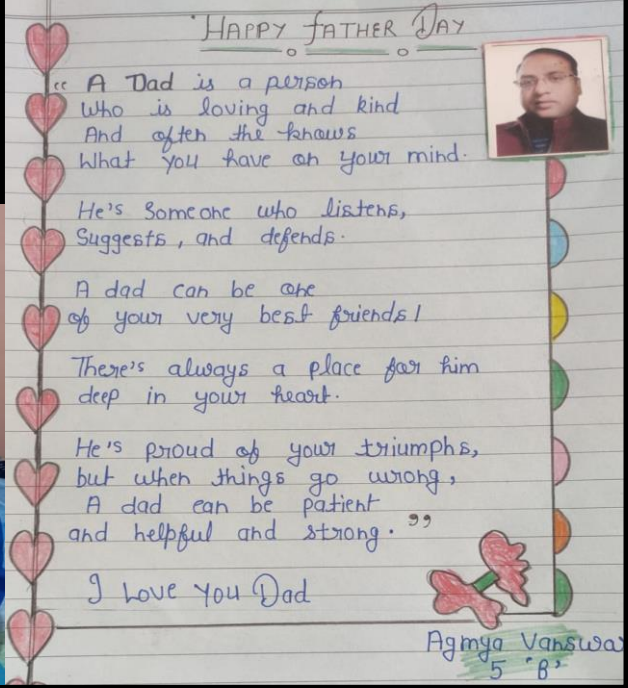 HAPPY FATHER DAY
“ A Dad is a person
Who is loving and kind
And often the knows
What you have on your mind.
He's Someone who listens,
Suggests, and defends.
A dad can be one
of your very best friends!
There's always a place for him
deep in your heart.
He's proud of your triumphs,
but when things go wrong,
A dad can be patient
and helpful and strong. ”
I Love You Dad
Agmya Vanswa
5 'B'